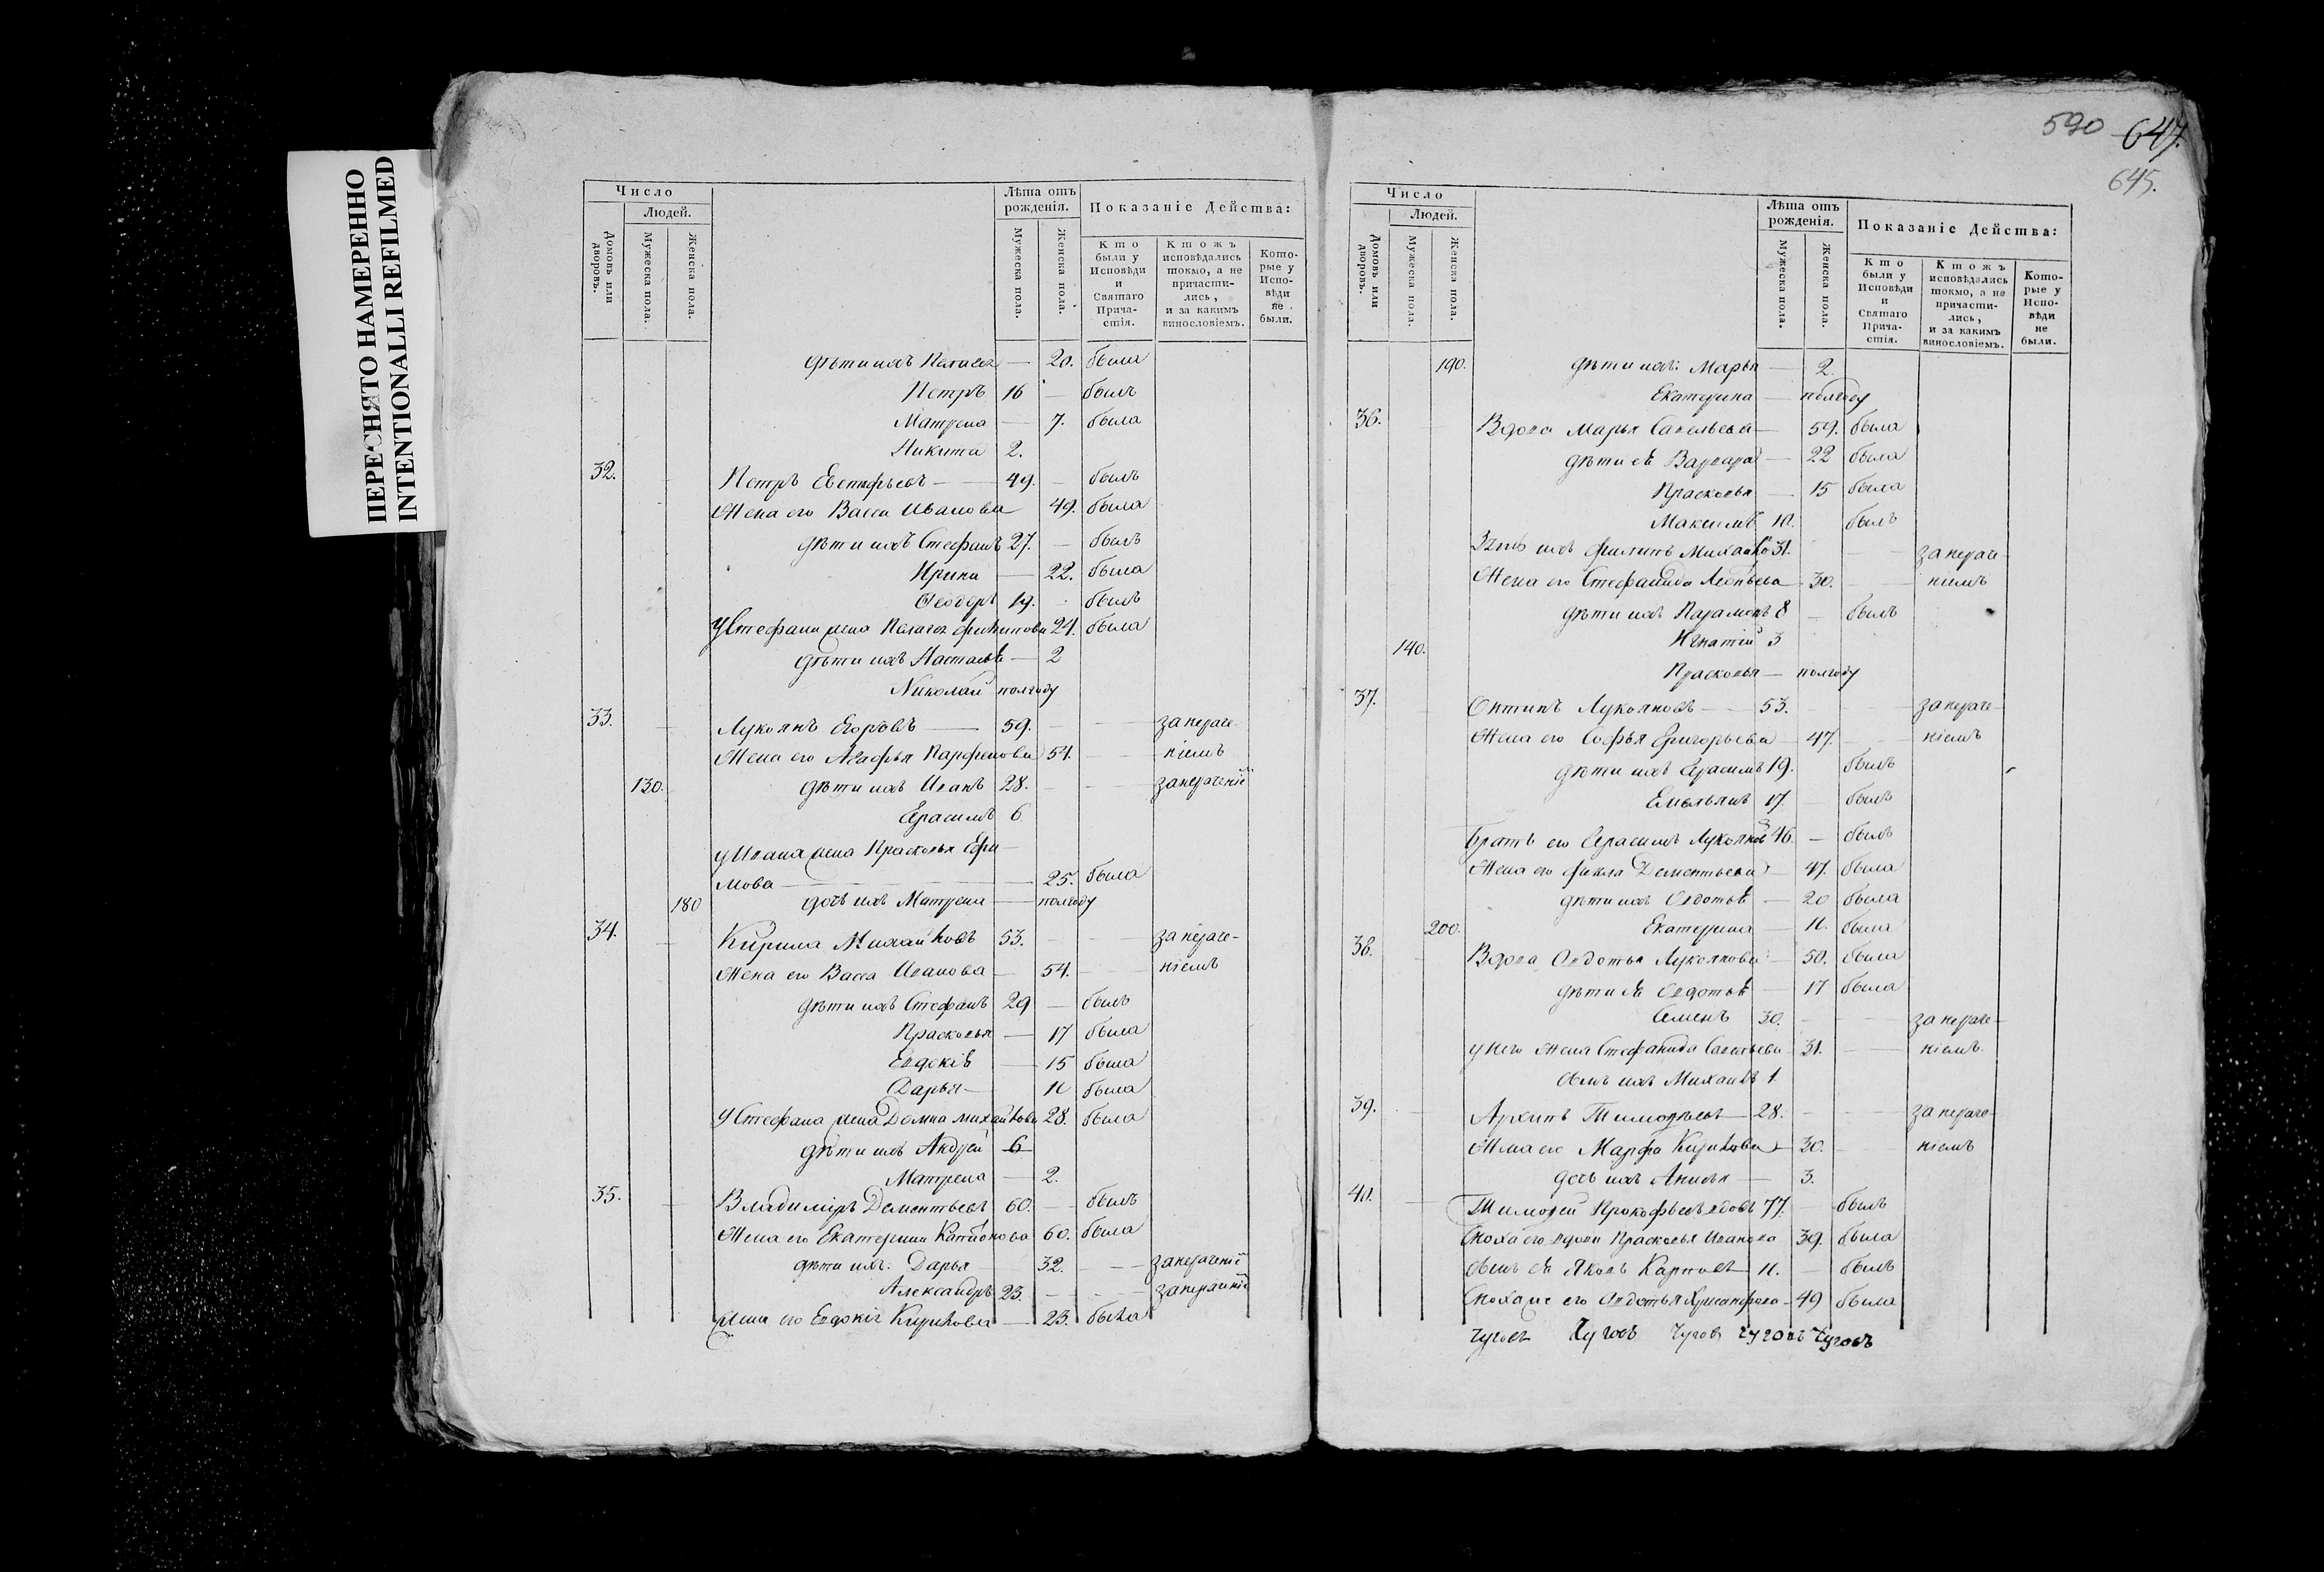 ПЕРЕСНЯТО НАМЕРЕННО
INTENTIONALLI REFILMED
590 647.
645.
Число
Людей.
Домовъ или дворовъ.
Мужеска пола.
Женска пола.
Лѣта отъ рожденія.
Мужеска пола.
Женска пола.
Показаніе Действа:
Кто были у Исповѣди и Святаго Прича-стія.
Ктожъ исповѣдались токмо, а не причасти-лись, и за какимъ винословіемъ.
Кото-рые у Испо-вѣди не были.
дѣти ихъ Пелагея — 20. была
Петръ 16 — былъ
Матрена — 7. была
Никита 2.
32. Петръ Евстафьевъ — 49. — былъ
Жена его Васса Иванова 49. была
дѣти ихъ Стефанъ 27. — былъ
Ирина — 22. была
Ѳеодоръ 19. — былъ
У Стефана жена Пелагея Филипова 24. была
дѣти ихъ Настасья — 2
Николай полгоду
33. Лукоянъ Егоровъ — 59. — — за нераче-
Жена его Агафья Парфенова 54. — — ніемъ
130. дѣти ихъ Иванъ 28. — — за нераченіемъ
Герасимъ 6
у Ивана жена Прасковья Ефи-
мова — 25. была
180 дочь ихъ Матрена — полгоду
34. Кирила Михайловъ 53. — — за нераче-
Жена его Васса Иванова — 54. — ніемъ
дѣти ихъ Стефанъ 29 — былъ
Прасковья — 17 была
Евдокія — 15 была
Дарья — 11 была
У Стефана жена Домна Михайлова 28. была
дѣти ихъ Андрей 6
Матрена — 2.
35. Владиміръ Дементьевъ 60. — былъ
Жена его Екатерина 60. была
дѣти ихъ: Дарья 32. — — за нераченіемъ
Александръ 23. — — за нераченіемъ
Жена его Евдокія Кирилова — 23. была
Число
Людей.
Домовъ или дворовъ.
Мужеска пола.
Женска пола.
Лѣта отъ рожденія.
Мужеска пола.
Женска пола.
Показаніе Действа:
Кто были у Исповѣди и Святаго Прича-стія.
Ктожъ исповѣдались токмо, а не причасти-лись, и за какимъ винословіемъ.
Кото-рые у Испо-вѣди не были.
190. дѣти ихъ: Марья — 2.
Екатерина — полгоду
36. Вдова Марья Савельева — 59. была
дѣти ея Варвара — 22 была
Прасковья — 15 была
Максимъ 10. былъ
Зять ихъ Филипъ Михайловъ 31. — — за нераче-
Жена его Стефанида Леонтьева 30. — — ніемъ
дѣти ихъ Парамонъ 8 — былъ
140. Игнатій 3
Прасковья — полгоду
37. Оптинъ Лукояновъ — 53. — — за нераче-
Жена его Софья Григорьева — 47. — ніемъ
дѣти ихъ Герасимъ 19. былъ
Емельянъ 17 — былъ
Братъ его Герасимъ Лукояновъ 46. — былъ
Жена его Фекла Дементьева — 47. была
дѣти ихъ Авдотья — 20 была
200. Екатерина — 11. была
38. Вдова Авдотья Лукоянова — 50. была
дѣти ея Авдотья — 17 была
Семенъ 30. — — за нераче-
у него жена Стефанида Савельева 31. — ніемъ.
сынъ ихъ Михаилъ 1.
39. Архипъ Тимоѳеевъ — 28. — — за нераче-
Жена его Марфа Кирилова — 30. — ніемъ
дочь ихъ Анисья — 3.
40. Тимоѳей Прокофьевъ вдовъ 77. — былъ
Сноха его вдова Прасковья Иванова 39. была
Сынъ ея Яковъ Карповъ 11. — былъ
Сноха же его Авдотья Хрисанфова — 49 была
Чуговъ Чуговъ Чуговъ Чуговъ Чуговъ